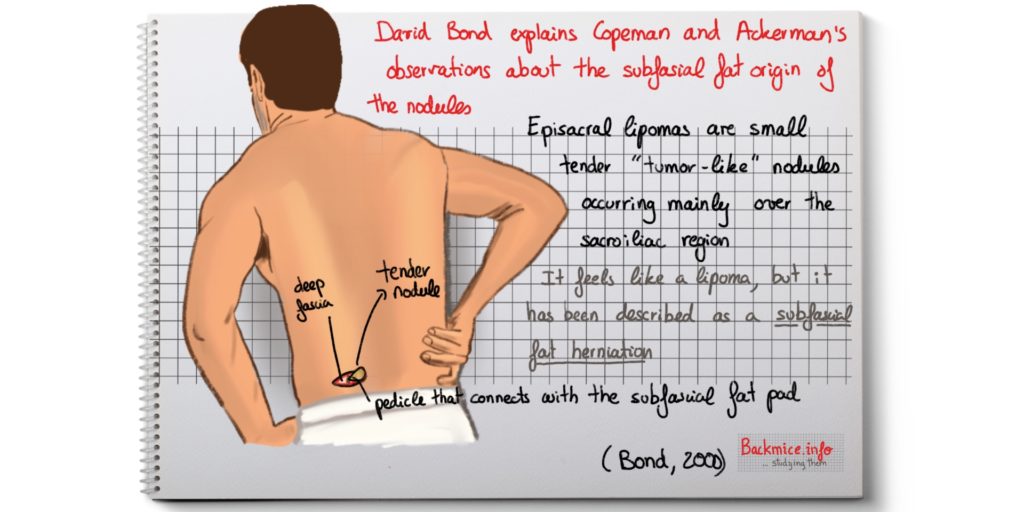 David Bond explains Copeman and Ackerman's
observations about the subfasial fat origin of
the nodules
Episacral lipomas are small
tender "tumor-like" nodules
occurring mainly over the
sacroiliac region
It feels like a lipoma, but it
has been described as a subfascial
fat herniation
deep
fascia
tender
nodule
pedicle that connects with the subfascial fat pad
(Bond, 2000)
Backmice.info
... studying them